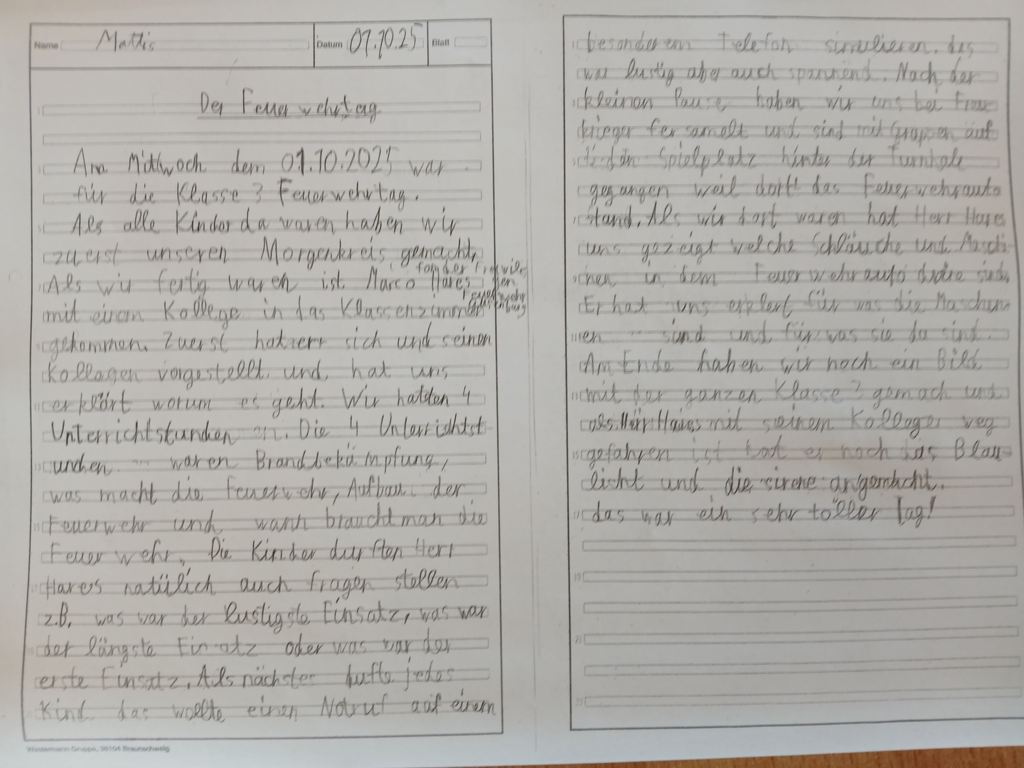 Name Mattis Datum 07.10.25 Blatt
Der Feuerwehrtag
Am Mittwoch dem 01.10.2025 war
für die Klasse 3 Feuerwehrtag.
Als alle Kinder da waren haben wir
zuerst unseren Morgenkreis gemacht,
Als wir fertig waren ist Marco Hares
von der freiwilligen
Feuerwehr
mit einem Kollege in das Klassenzimmer
gekommen. Zuerst hat err sich und seinen
Kollagen vorgestellt und hat uns
erklärt worum es geht. Wir hatten 4
Unterrichtstunden. Die 4 Unterrichtst
unden waren Brandbekämpfung,
was macht die Feuerwehr, Aufbau der
Feuerwehr und wann braucht man die
Feuerwehr. Die Kinder durften Herr
Hares natülich auch fragen stellen
z.B. was war der lustigste Einsatz, was war
der längste Einsatz oder was war der
erste Einsatz. Als nächstes dufte jedes
Kind das wollte einen Notruf auf einem
besonderem Telefon simulieren. das
war lustig aber auch spannend. Nach der
kleinen Pause haben wir uns bei Frau
krieger fersamelt und sind mit Gruppen auf
den Spielplatz hinter der Turnhale
gegangen weil dortt das Feuerwehrauto
stand. Als wir dort waren hat Herr Hares
uns gezeigt welche Schläuche und Maschi
nen in dem Feuerwehrauto sind.
Er hat uns erklert für was die Maschin
en sind und für was sie da sind.
Am Ende haben wir noch ein Bild
mit der ganzen Klasse 3 gemach und
als Herr Hares mit seinem Kollegen weg
gefahren ist hat er noch das Blau
licht und die sirene angemacht.
das war ein sehr toller Tag!
Westermann Gruppe, 38104 Braunschweig